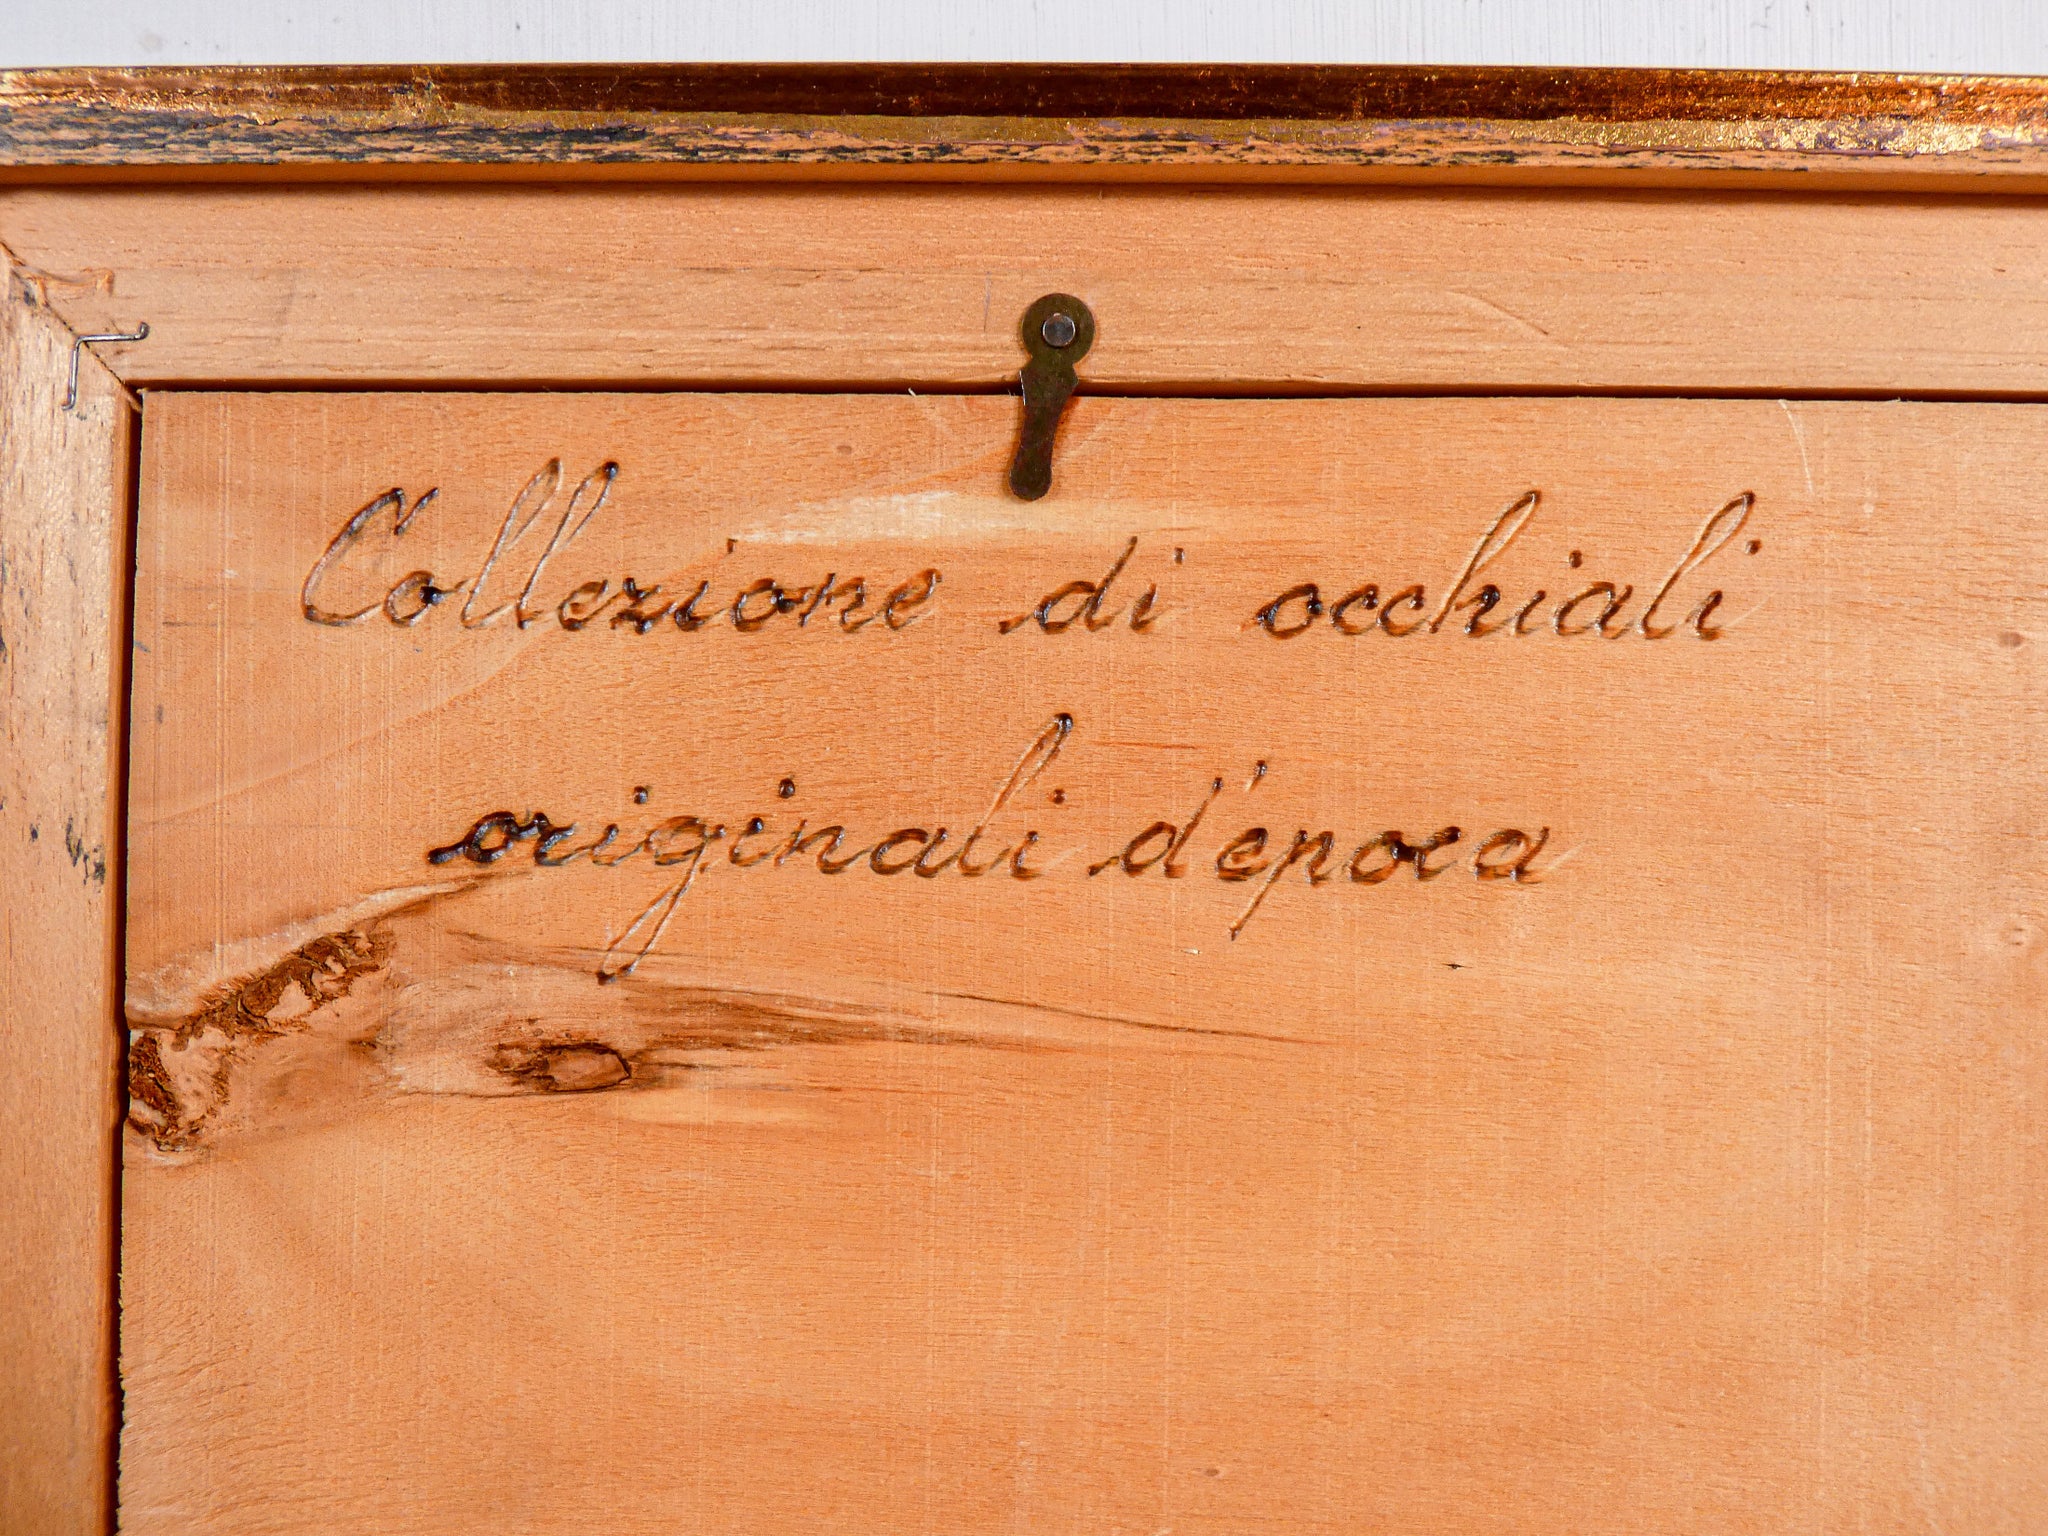 Collezione di occhiali
originali d'epoca